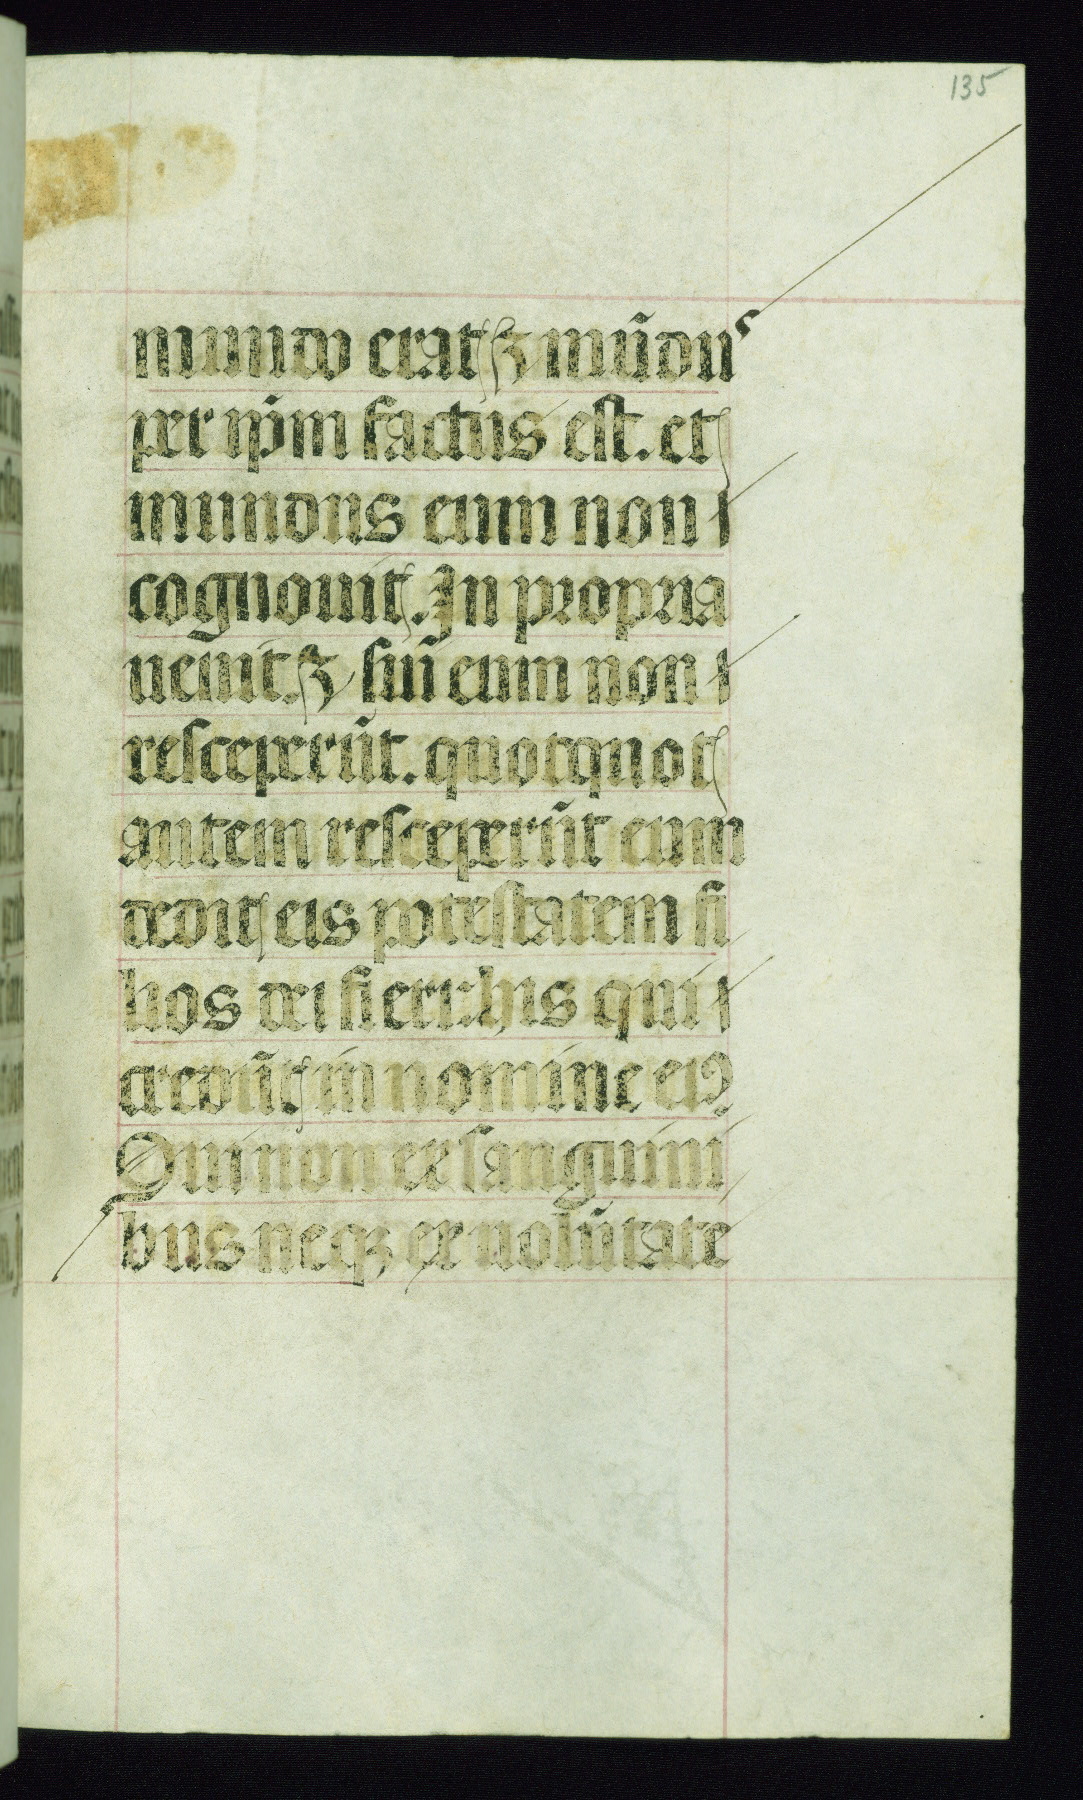 135
mundo erat ⁊ mũdꝰ
per ip̃m factus est. et
mundus eum non
cognouit. In propria
uenit. ⁊ sui eum non
resceperũt. quotquot
autem resceperũt eum
dedit eis potestatem fi
lios dei fieri: his qui
credũt in nomine eiꝰ.
Qui non ex sanguini
bus neqꝫ ex uolũtate